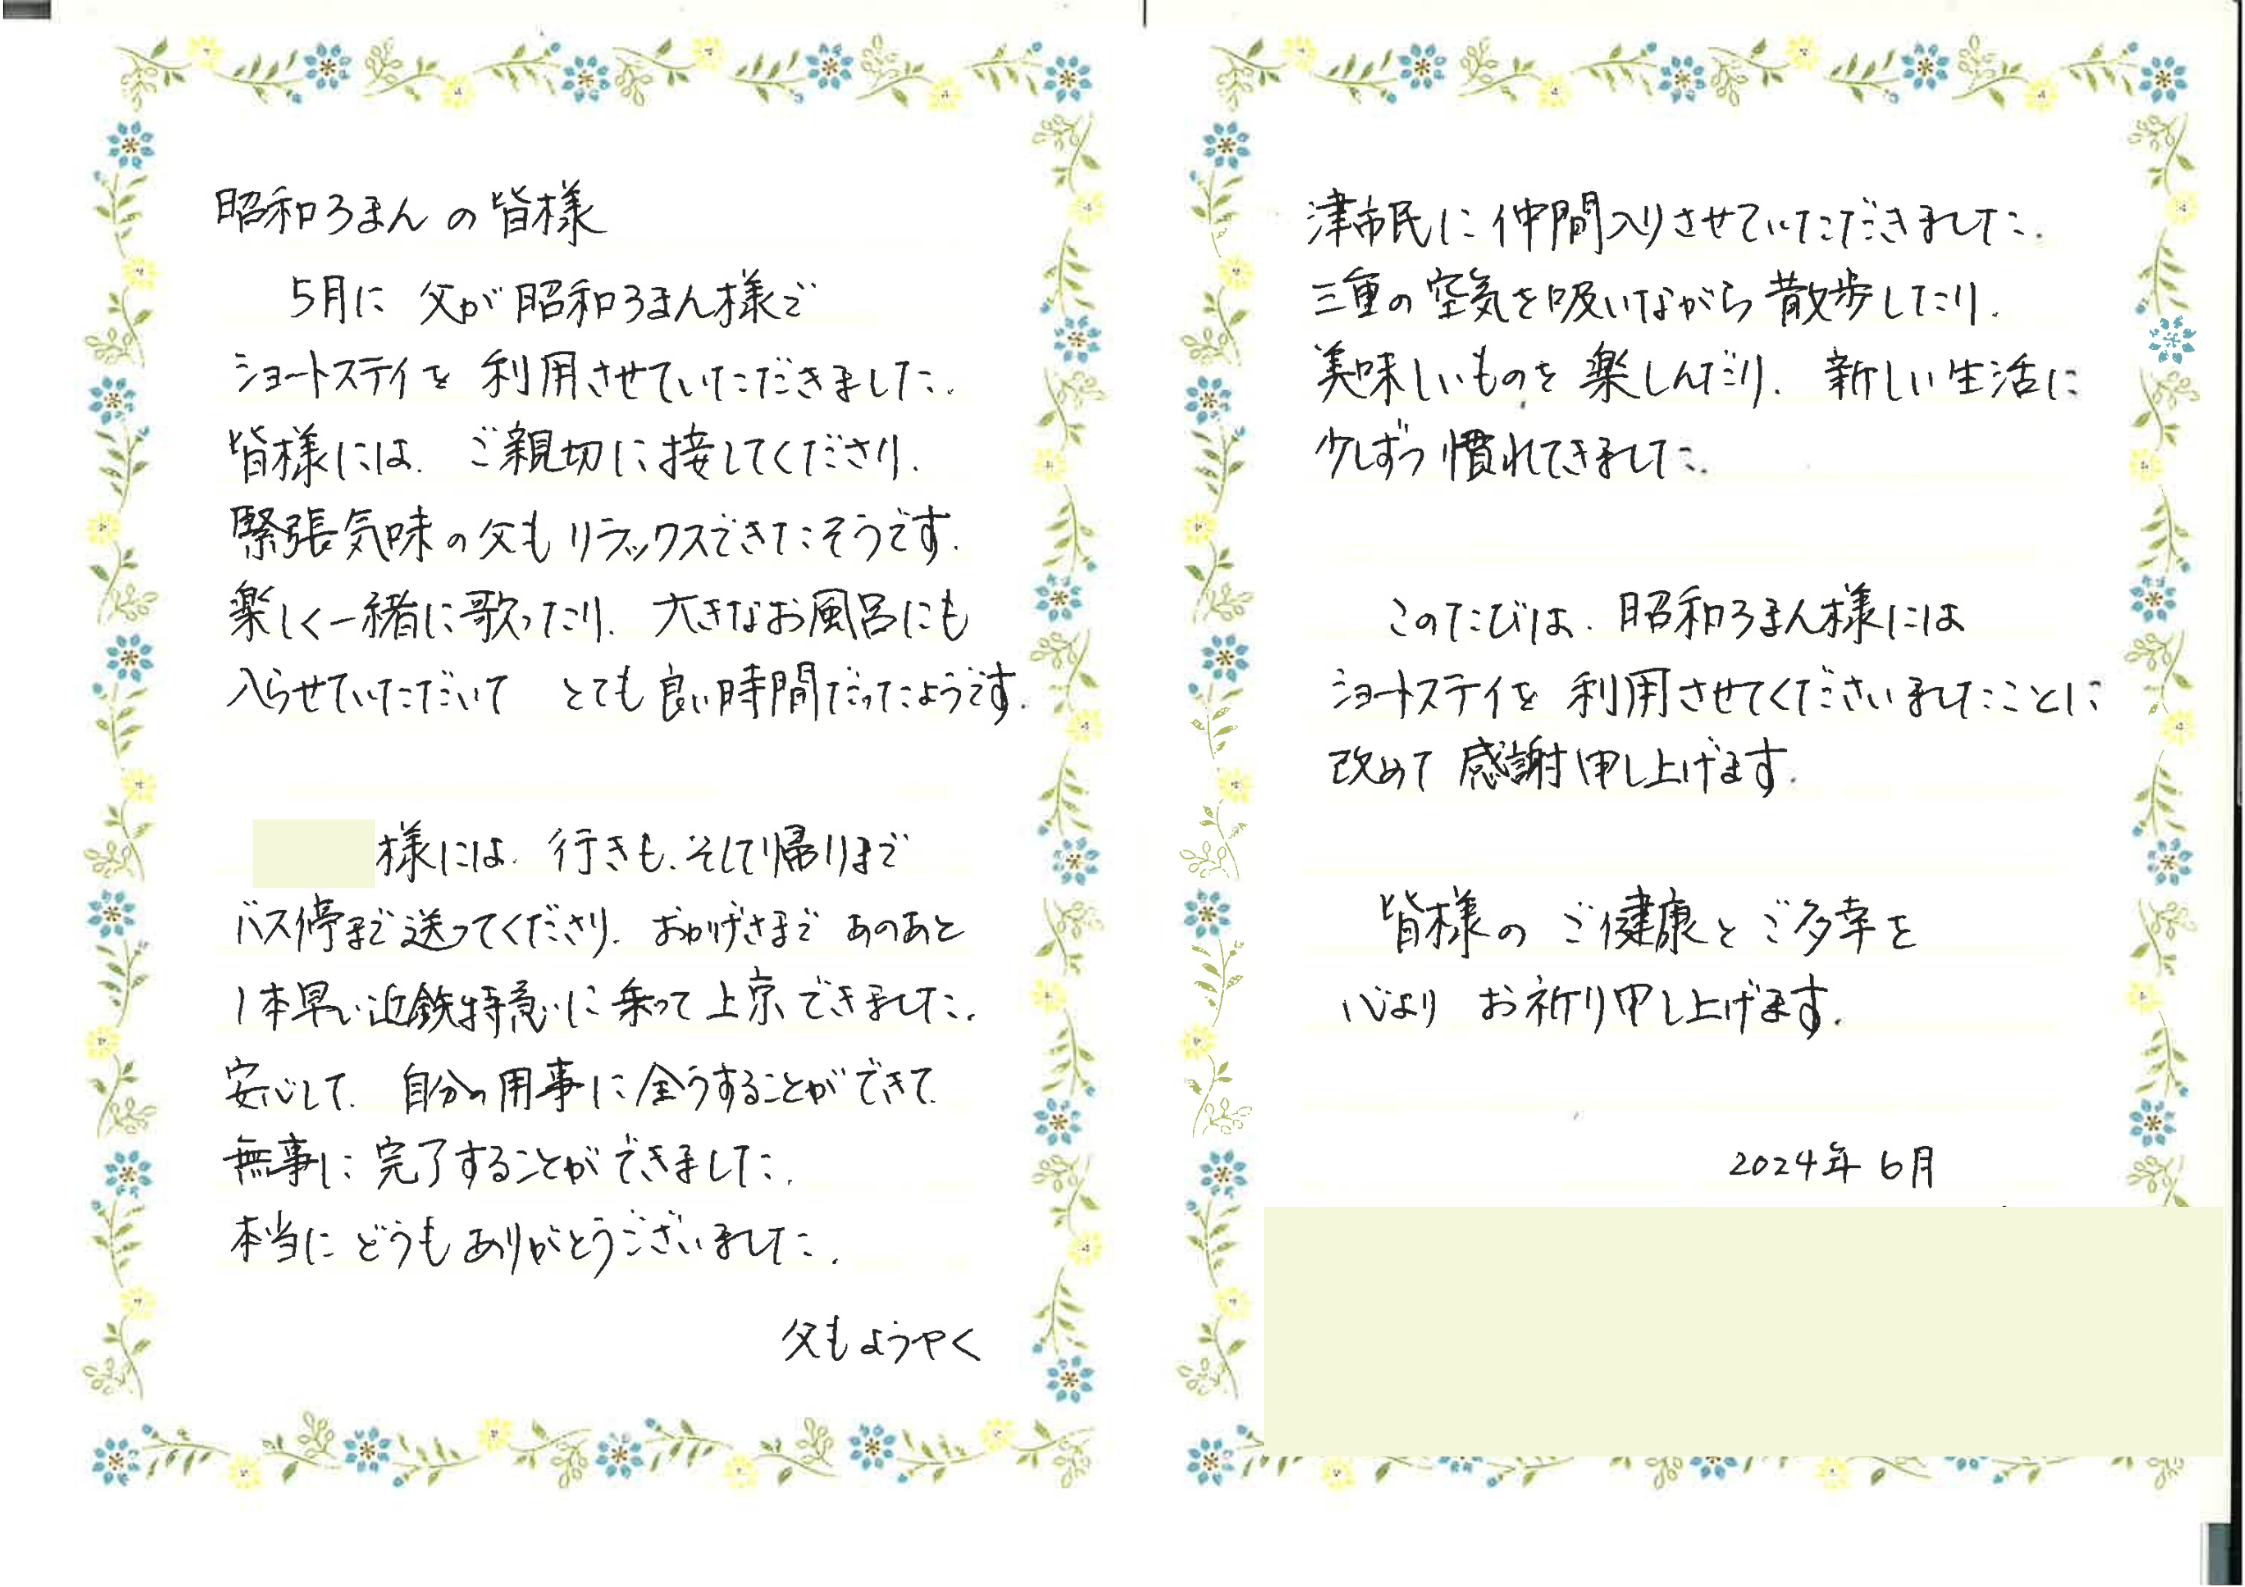 昭和ろまんの皆様
5月に 父が昭和ろまん様で
ショートステイを 利用させていただきました.
皆様には. ご親切に接してくださり.
緊張気味の父もリラックスできたそうです.
楽しく一緒に歌ったり. 大きなお風呂にも
入らせていただいて とても良い時間だったようです.
様には. 行きも.そして帰りまで
バス停まで送ってくださり. おかげさまで あのあと
1本早い近鉄特急に乗って上京できました.
安心して. 自分の用事に全うすることができて.
無事に完了することができました.
本当にどうもありがとうございました.
父もようやく
津市民に仲間入りさせていただきました.
三重の空気を吸いながら散歩したり.
美味しいものを楽しんだり. 新しい生活に
少しずつ慣れてきました.
このたびは. 昭和ろまん様には
ショートステイを 利用させてくださいましたことに
改めて感謝申し上げます.
皆様のご健康とご多幸を
心より お祈り申し上げます.
2024年6月